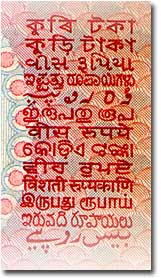 কুৰি টকা
কুড়ি টাকা
વીસ રૂપિયા
ಇಪ್ಪತ್ತು ರೂಪಾಯಿಗಳು
ഇരുപതു രൂപ
वीस रुपये
କୋଡ଼ିଏ ଟଙ୍କା
ਵੀਹ ਰੁਪਏ
विंशती रूप्यकाणि
இருபது ரூபாய்
ఇరువది రూపాయలు
بیس روپیے